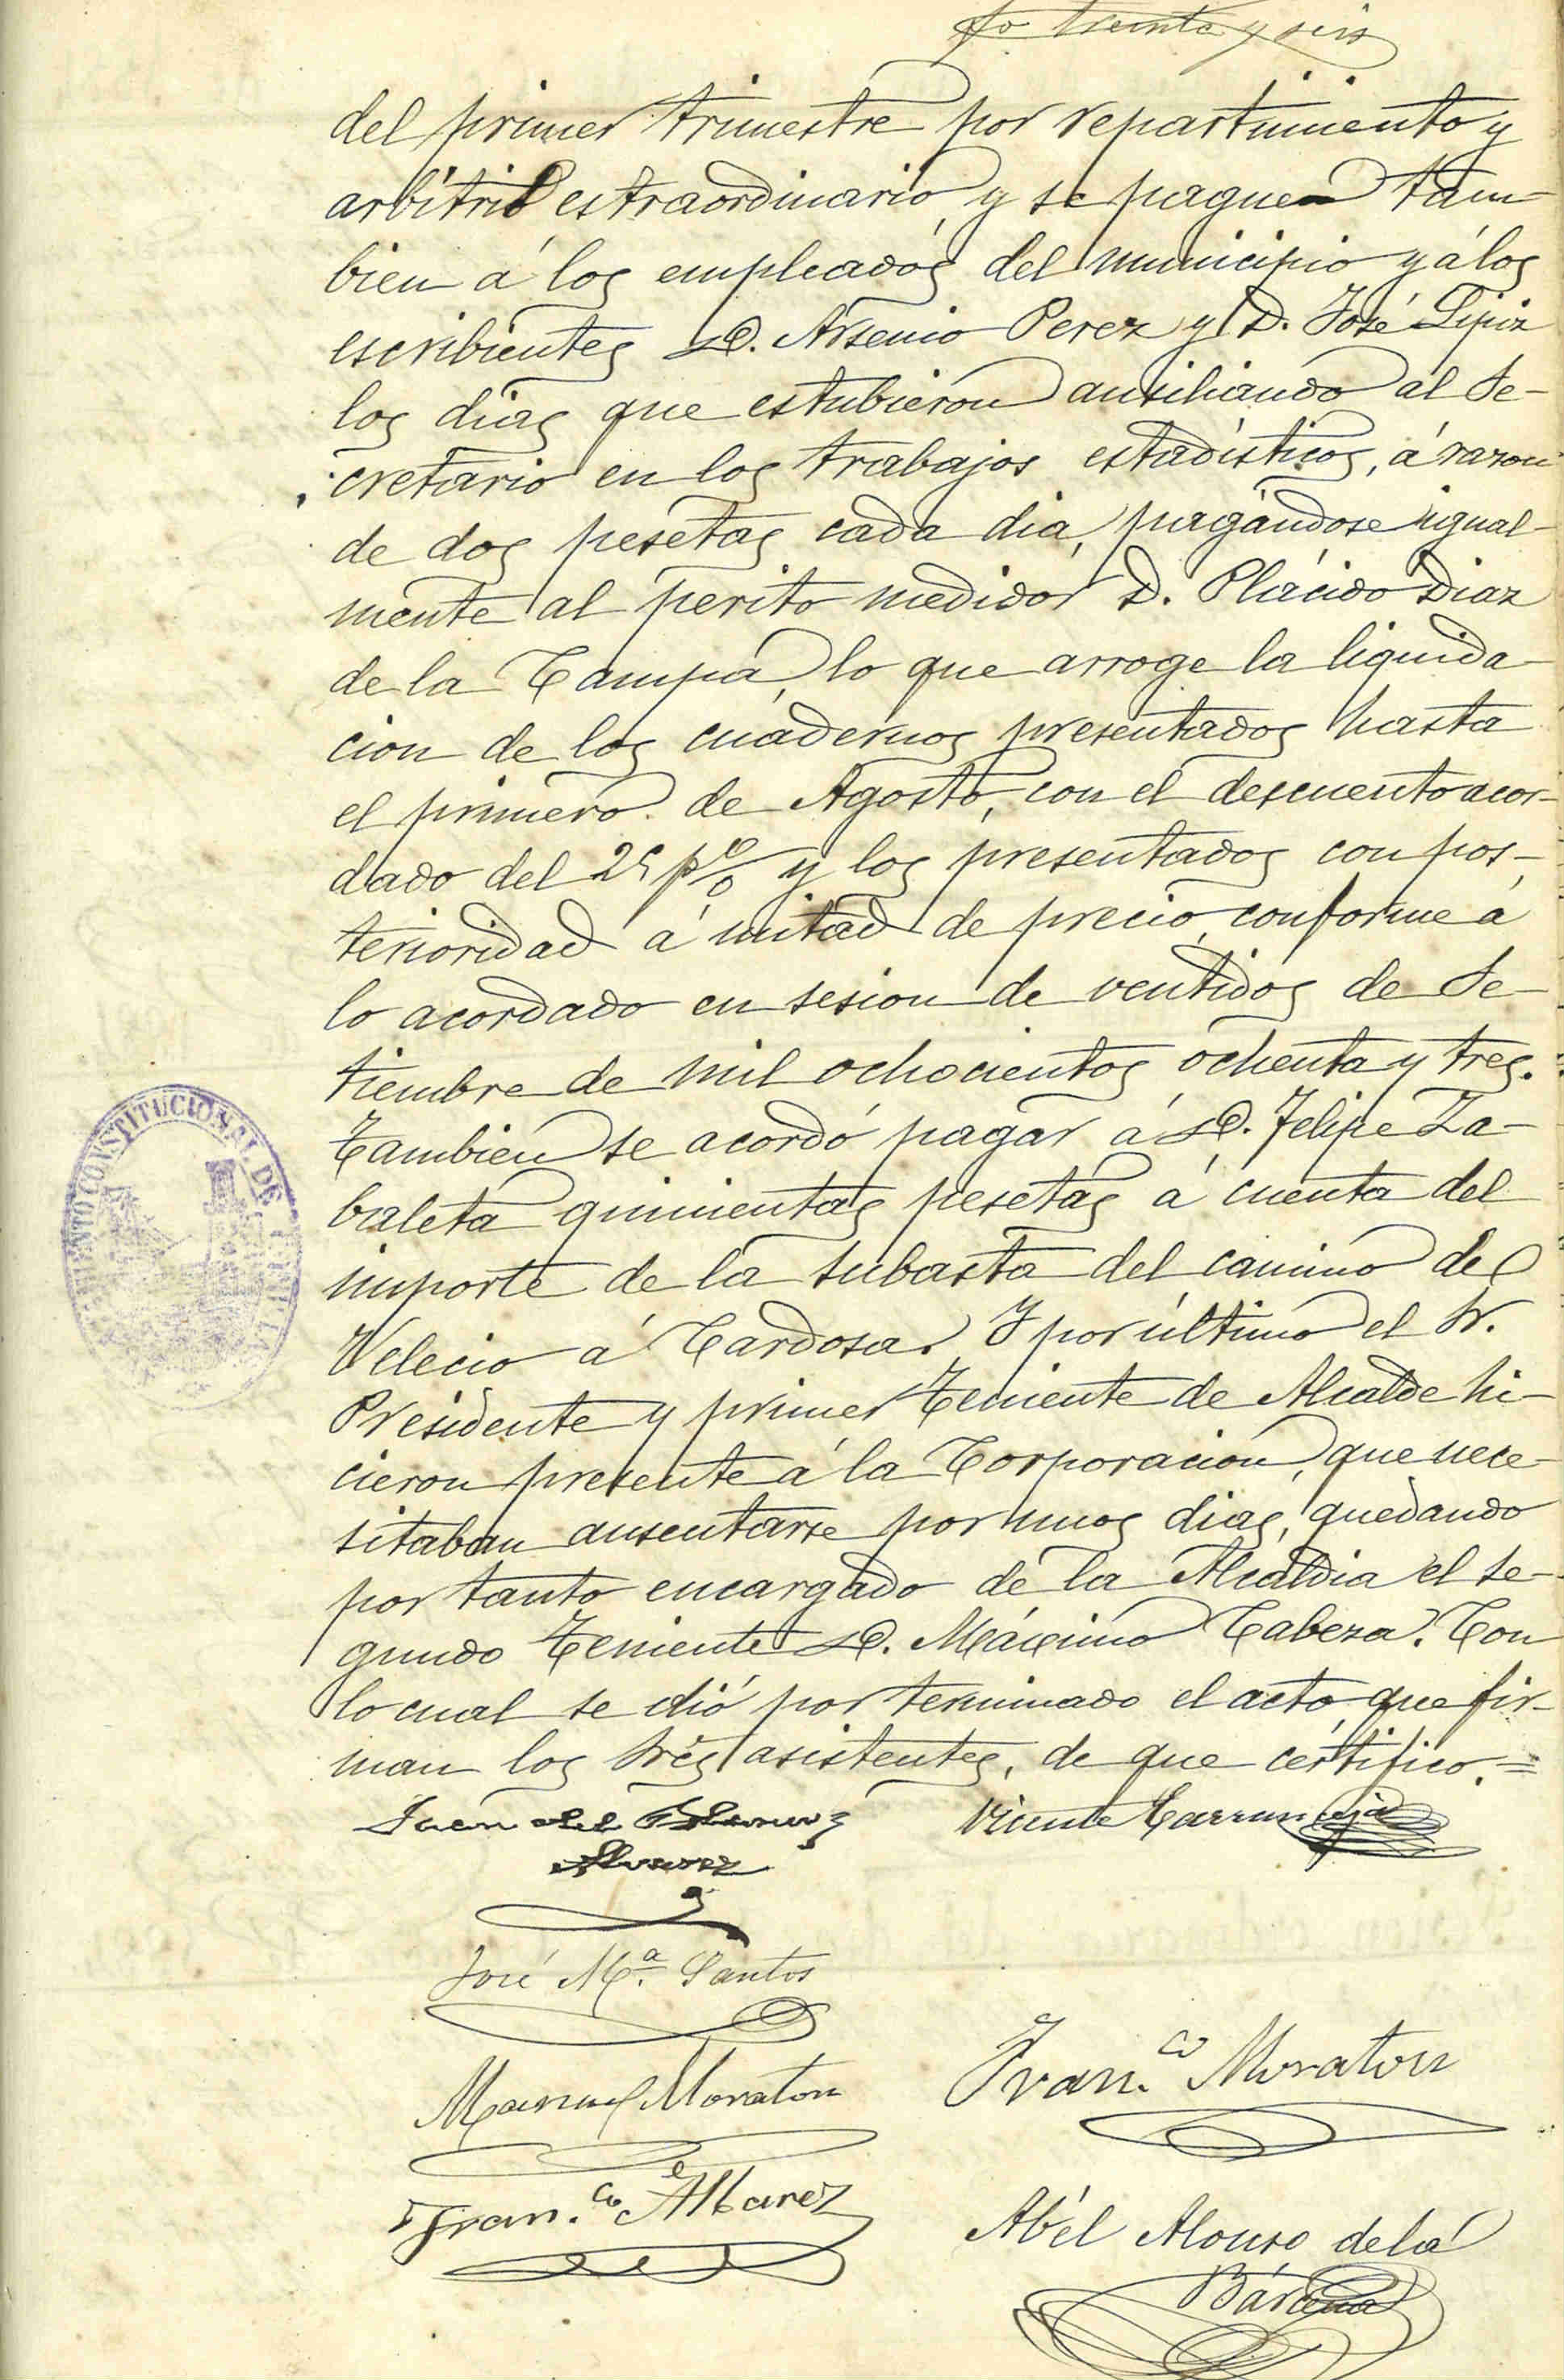 fo treinta y seis
del primer trimestre por repartimiento y
arbitrio estraordinario, y se paguen tam-
bien á los empleados del municipio y á los
escribientes D. Arsenio Perez y D. José Lipiz
los dias que estubieron ausiliando al Se-
cretario en los trabajos estadísticos, á razon
de dos pesetas cada dia, pagándose igual-
mente al perito medidor D. Plácido Diaz
de la Campa, lo que arroge la liquida-
cion de los cuadernos presentados hasta
el primero de Agosto, con el descuento acor-
dado del 25 p% y los presentados con pos-
terioridad á mitad de precio, conforme á
lo acordado en sesion de ventidos de Se-
tiembre de mil ochocientos ochenta y tres.
Tambien se acordó pagar á D. Felipe Za-
baleta quinientas pesetas á cuenta del
importe de la subasta del camino de
Velecio á Cardosa. Y por último el Sr.
Presidente y primer Teniente de Alcalde hi-
cieron presente á la Corporacion, que nece-
sitaban ausentarse por unos dias, quedando
por tanto encargado de la Alcaldia el se-
gundo Teniente D. Máximo Cabeza. Con
lo cual se dió por terminado el acto que fir-
man los Sres asistentes, de que certifico.=
AYUNTAMIENTO CONSTITUCIONAL DE
Juan del Blanco y Vicente Carranceja
Alvarez
José Mª. Santos
Manuel Moraton Fran.co Moraton
Fran.co Albarez
Abél Alonso de la
Bárcena